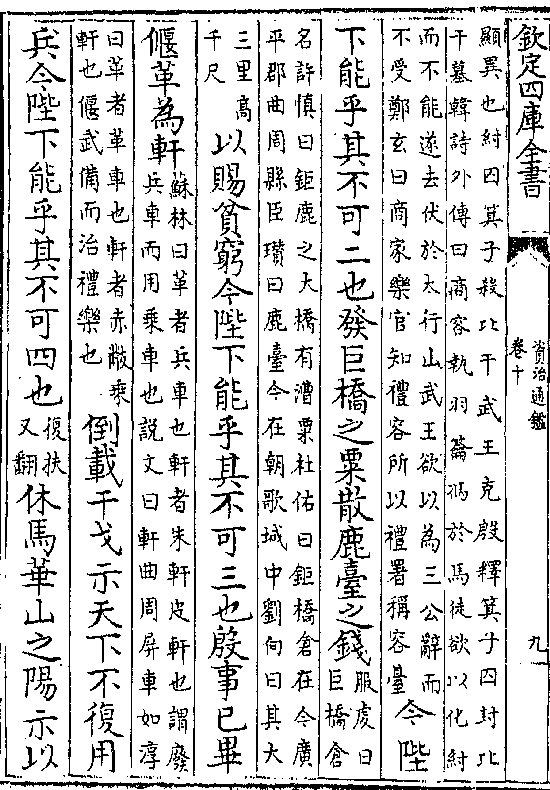 欽定四庫全書
資治通鑑
卷十
九
顯異也紂囚箕子殺比干武王克殷釋箕子囚封比
干墓韓詩外傳曰商容執羽籥馮於馬徒欲以化紂
而不能遂去伏於太行山武王欲以為三公辭而
不受鄭玄曰商家樂官知禮容所以禮署稱容臺
今陛
下能乎其不可二也發巨橋之粟散鹿臺之錢
服虔曰
巨橋倉
名許慎曰鉅鹿之大橋有漕粟杜佑曰鉅橋倉在今廣
平郡曲周縣臣瓚曰鹿臺今在朝歌城中劉向曰其大
三里高
千尺
以賜貧窮今陛下能乎其不可三也殷事已畢
偃革為軒
蘇林曰革者兵車也軒者朱軒皮軒也謂廢
兵車而用乗車也説文曰軒曲周屏車如淳
曰革者革車也軒者赤黻乗
軒也偃武備而治禮樂也
倒載干戈示天下不復用
兵今陛下能乎其不可四也
復扶
又翻
休馬華山之陽示以